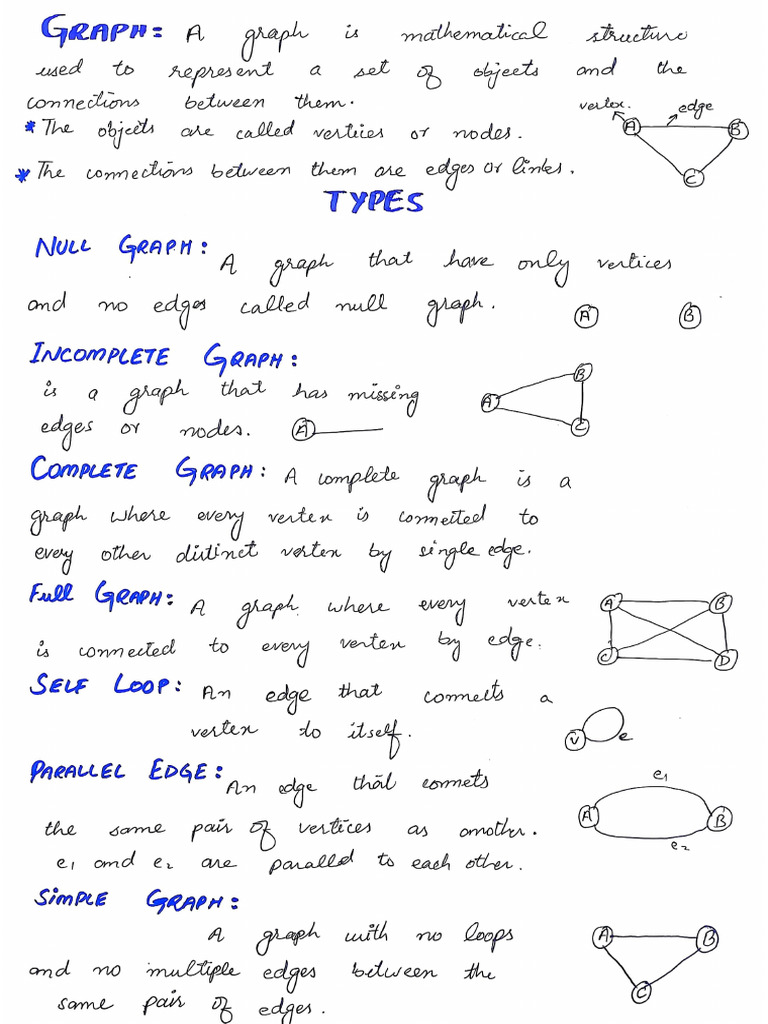 GRAPH: A graph is mathematical structure
used to represent a set of objects and the
connections between them.
vertex. edge
* The objects are called vertices or nodes.
A B
* The connections between them are edges or links.
C
TYPES
NULL GRAPH: A graph that have only vertices
and no edges called null graph.
A B
INCOMPLETE GRAPH:
is a graph that has missing
edges or nodes. A
B
A
C
COMPLETE GRAPH: A complete graph is a
graph where every vertex is connected to
every other distinct vertex by single edge.
Full GRAPH: A graph where every vertex
is connected to every vertex by edge.
A B
C D
SELF LOOP: An edge that connects a
vertex to itself.
v e
PARALLEL EDGE: An edge that connets
the same pair of vertices as another.
e1 and e2 are parallel to each other.
e1
A B
e2
SIMPLE GRAPH:
A graph with no loops
and no multiple edges between the
same pair of edges.
A B
C